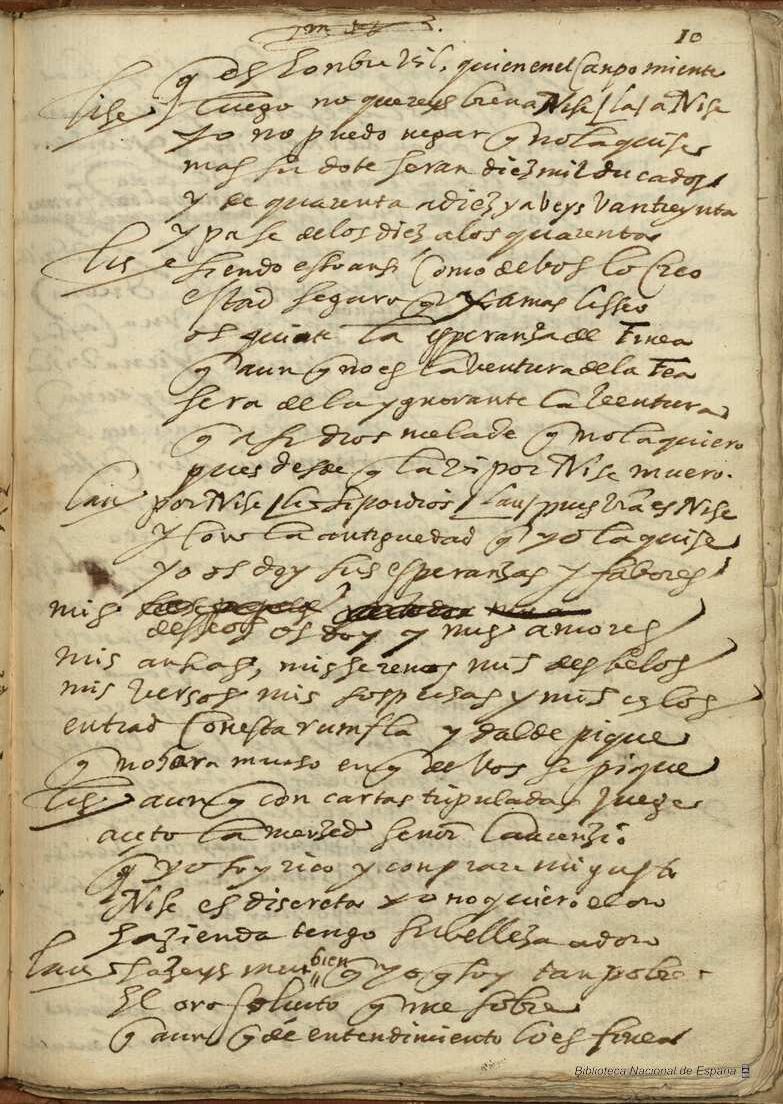 10
q es honbre vil, quien en el canpo miente
lise luego no quereys bien a Nise / la / a Nise
yo no puedo negar q no la quise
mas su dote seran diez mil ducados
y de quarenta a diez ya beys van treynta
y pase de los diez a los quarenta
lise siendo esto ansi como de bos lo creo
estad seguro q jamas liseo
os quite la esperanza de Finea
q aun q no es la ventura de la Fea
sera de la ygnorante la ventura
q asi dios me la de q no la quiero
pues desde q la vi por Nise muero
lau por Nise / lis si por dios / lau / pues vra es Nise
y con la antiguedad q yo la quise
yo os doy sus esperanzas y fabores
mis
deseos os doy y mis amores
mis ansias, mis serenos mis desbelos
mis versos mis sospechas y mis celos
entrad con esta rumfla y dalde pique
q no hara mucho en q de bos se pique
lis aun q con cartas tripuladas juege
aceto la merzed señor laurenzio
q yo soy rico y conprare mi gusto
Nise es discreta yo no quiero el oro
hazienda tengo su belleza adoro
lau hazeys muy bien q yo q soy tan pobre
el oro solicito q me sobre
q aun q de entendimiento lo es finea
Biblioteca Nacional de España